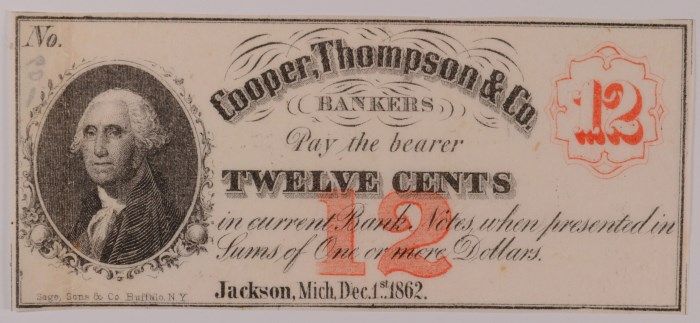 No.
Cooper, Thompson & Co.
BANKERS
12
Pay the bearer
TWELVE CENTS
12
in current Bank Notes, when presented in
Sums of One or more Dollars.
Jackson, Mich, Dec. 1st 1862.
Sage, Sons & Co. Buffalo, N.Y.